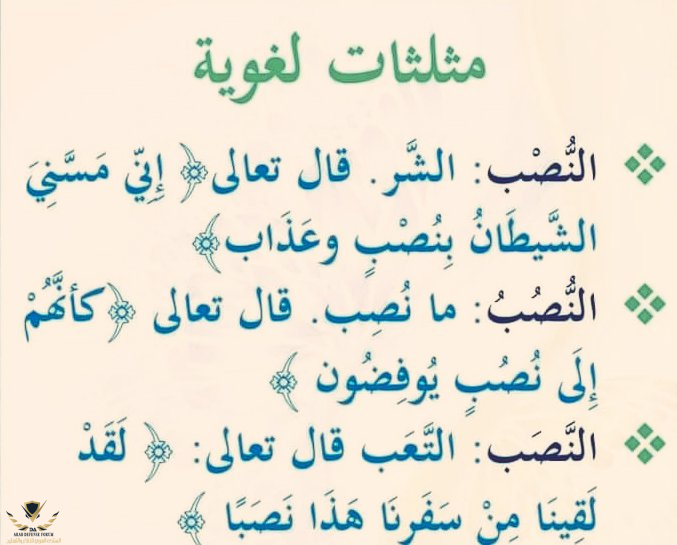 مثلثات لغوية
النُّصْب: الشَّر. قال تعالى ﴿ إِنِّي مَسَّنِيَ
الشَّيطَانُ بِنُصْبٍ وعَذَاب﴾
النُّصُبُ: ما نُصِب. قال تعالى ﴿كأنَّهُمْ
إِلَى نُصُبٍ يُوفِضُون ﴾
النَّصَب: التَّعَب قال تعالى: ﴿ لَقَدْ
لَقِينَا مِنْ سَفَرِنَا هَذَا نَصَبًا ﴾
ARAB DEFENSE FORUM